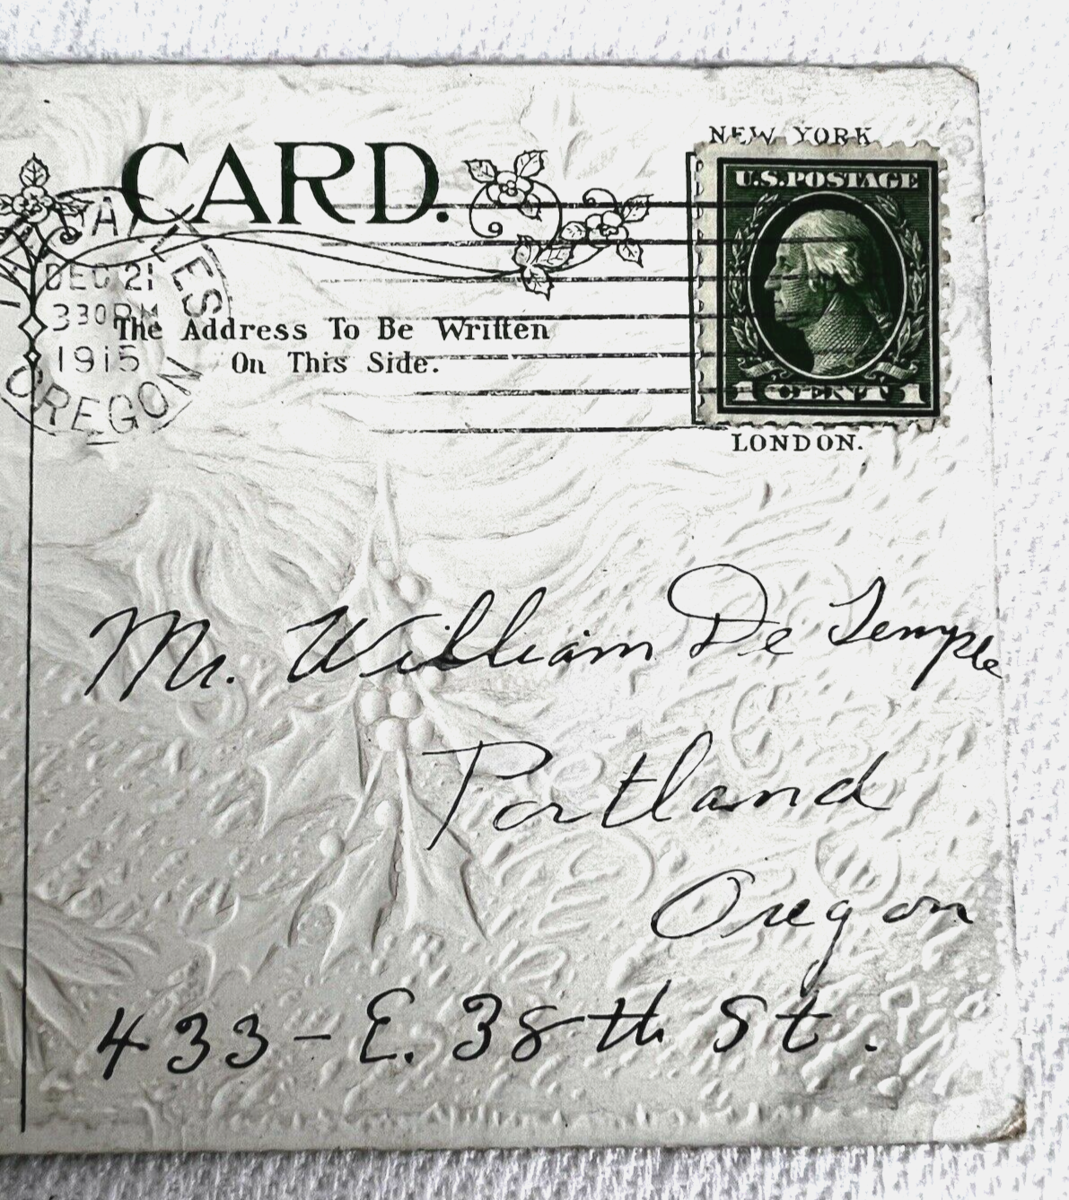 CARD.
9
NEW YORK
U.S. POSTAGE
1 CENT 1
LONDON.
DALLES
DEC 21
330 PM
1915
OREGON
The Address To Be Written
On This Side.
Mr. William De Temple
Portland
Oregon
433 - E. 38th St.